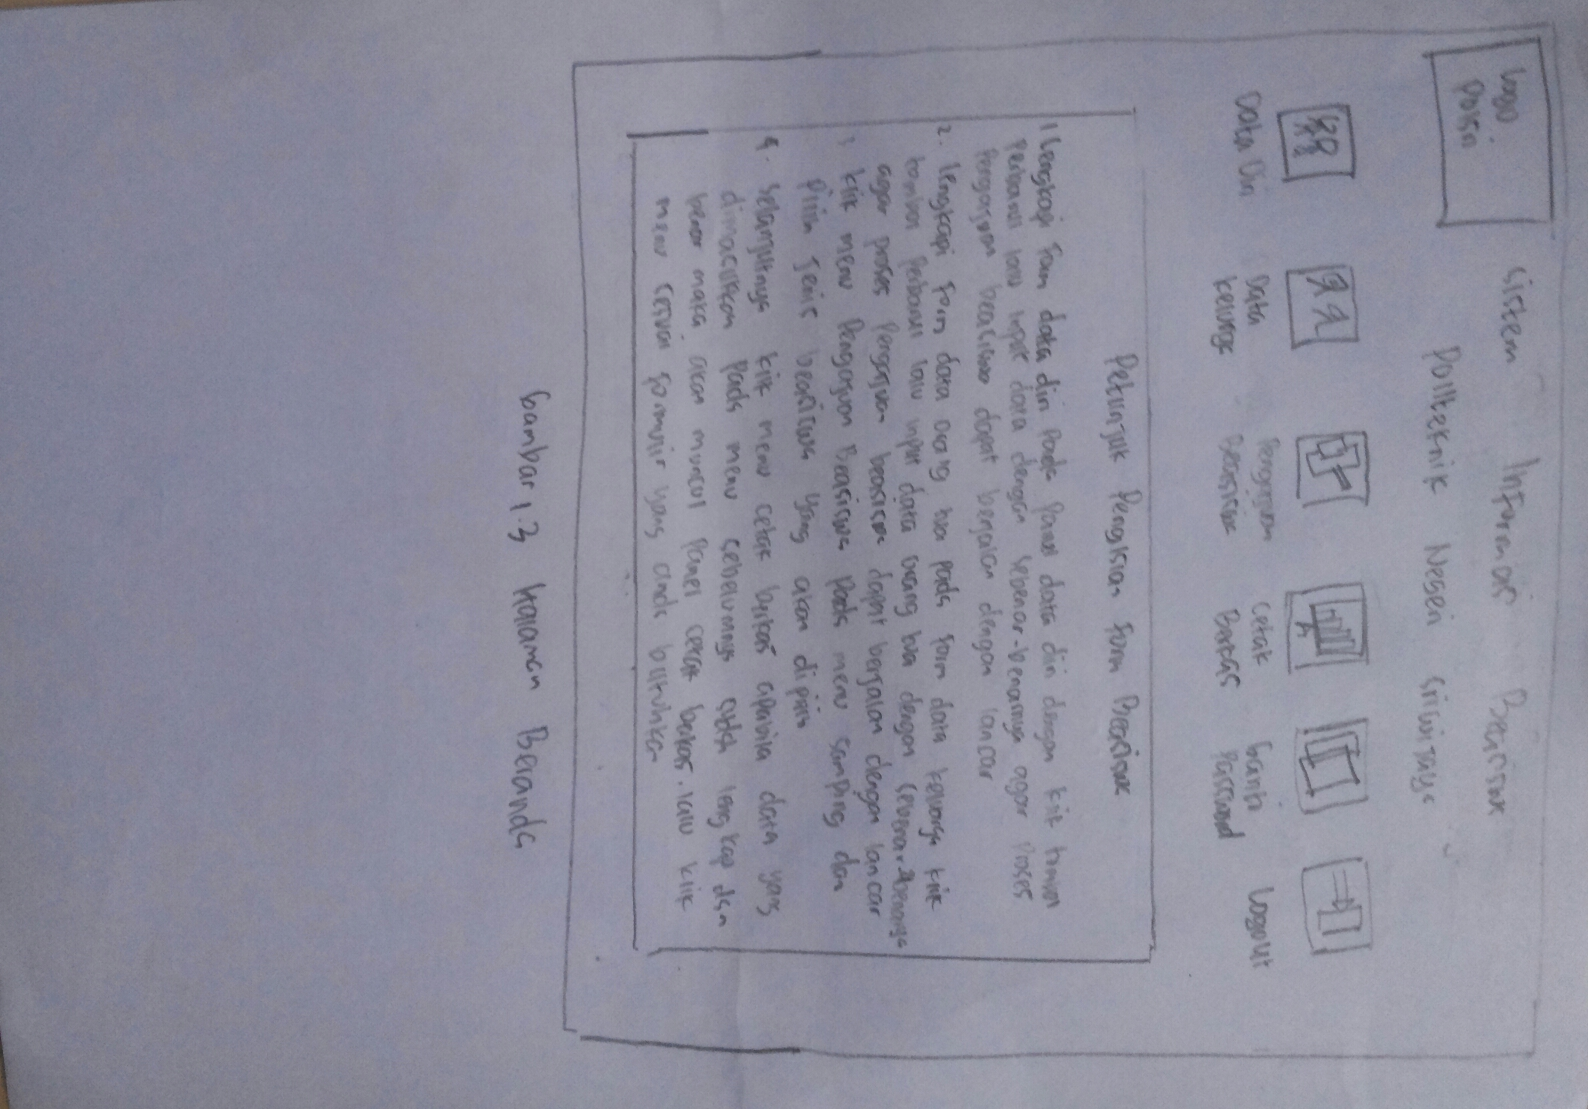 Logo
Polsri
Sistem Informasi Beasiswa
Politeknik Negeri Sriwijaya
Data Diri
Data
keluarga
Pengajuan
Beasiswa
Cetak
Berkas
Ganti
Password
Logout
Petunjuk Pengisian Form Beasiswa
1 Lengkapi Form data diri Pada Panel data diri dengan klik tombol
Perbarui lalu input data dengan sebenar-benarnya agar Proses
Pengajuan beasiswa dapat berjalan dengan lancar
2. Lengkapi Form data orang tua pada Form data keluarga klik
tombol Perbarui lalu input data orang tua dengan sebenar-benarnya
agar proses Pengajuan beasiswa dapat berjalan dengan lancar
klik menu Pengajuan Beasiswa Pada menu samping dan
Pilih Jenis beasiswa yang akan dipilih
4. Selanjutnya klik menu cetak berkas apabila data yang
dimasukkan Pada menu sebelumnya sudah lengkap dan
benar maka akan muncul Panel cetak berkas. lalu klik
menu sesuai formulir yang anda butuhkan
Gambar 1.3 Halaman Beranda